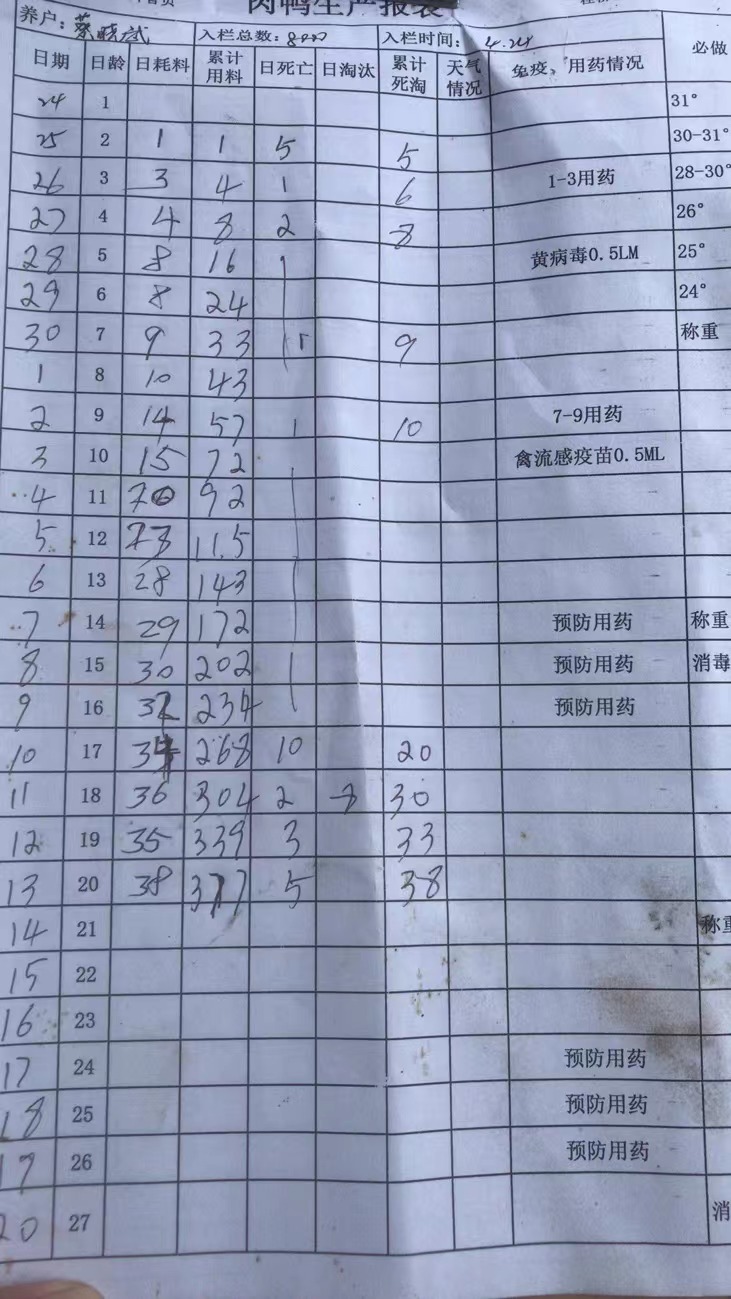 肉鸭生产报表
养户: 入栏总数: 8000 入栏时间: 4.24
日期 日龄 日耗料 累计用料 日死亡 日淘汰 累计死淘 天气情况 免疫，用药情况 必做
24 1 31°
25 2 1 1 5 5 30-31°
26 3 3 4 1 6 1-3用药 28-30°
27 4 4 8 2 8 26°
28 5 8 16 黄病毒0.5LM 25°
29 6 8 24 24°
30 7 9 33 9 称重
1 8 10 43
2 9 14 57 1 10 7-9用药
3 10 15 72 禽流感疫苗0.5ML
4 11 20 92
5 12 23 11.5
6 13 28 143
7 14 29 172 预防用药 称重
8 15 30 202 预防用药 消毒
9 16 32 234 预防用药
10 17 34 268 10 20
11 18 36 304 2 30
12 19 35 339 3 33
13 20 38 377 5 38
14 21 称重
15 22
16 23
17 24 预防用药
18 25 预防用药
19 26 预防用药
20 27 消